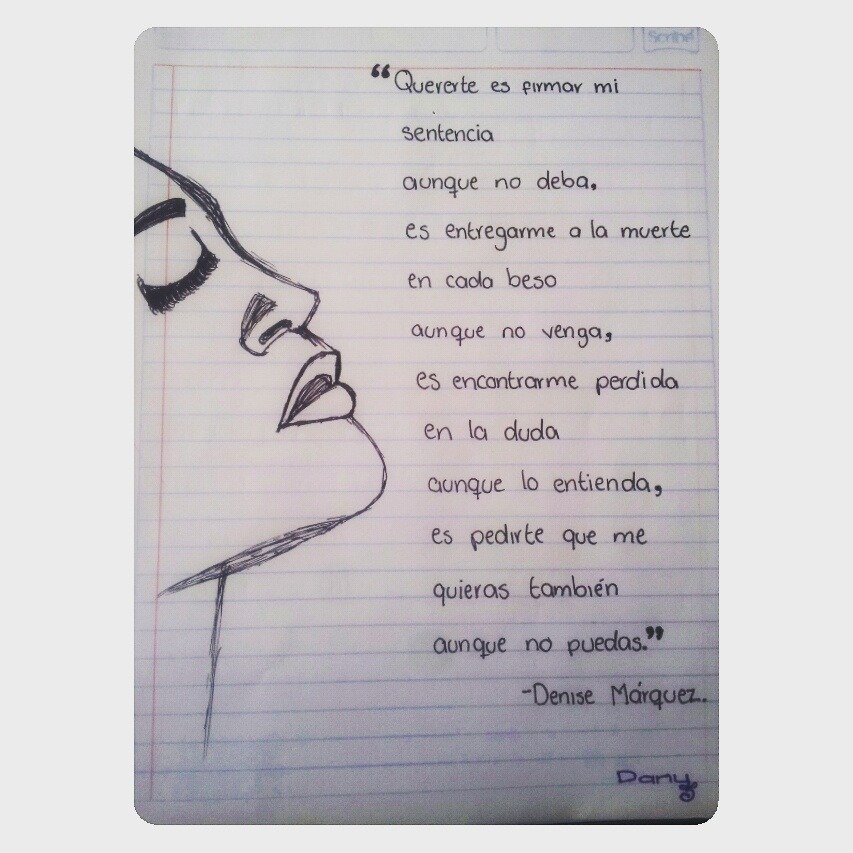 Scribe
“Quererte es firmar mi
sentencia
aunque no deba,
es entregarme a la muerte
en cada beso
aunque no venga,
es encontrarme perdida
en la duda
aunque lo entienda,
es pedirte que me
quieras también
aunque no puedas.”
-Denise Márquez.
Dany